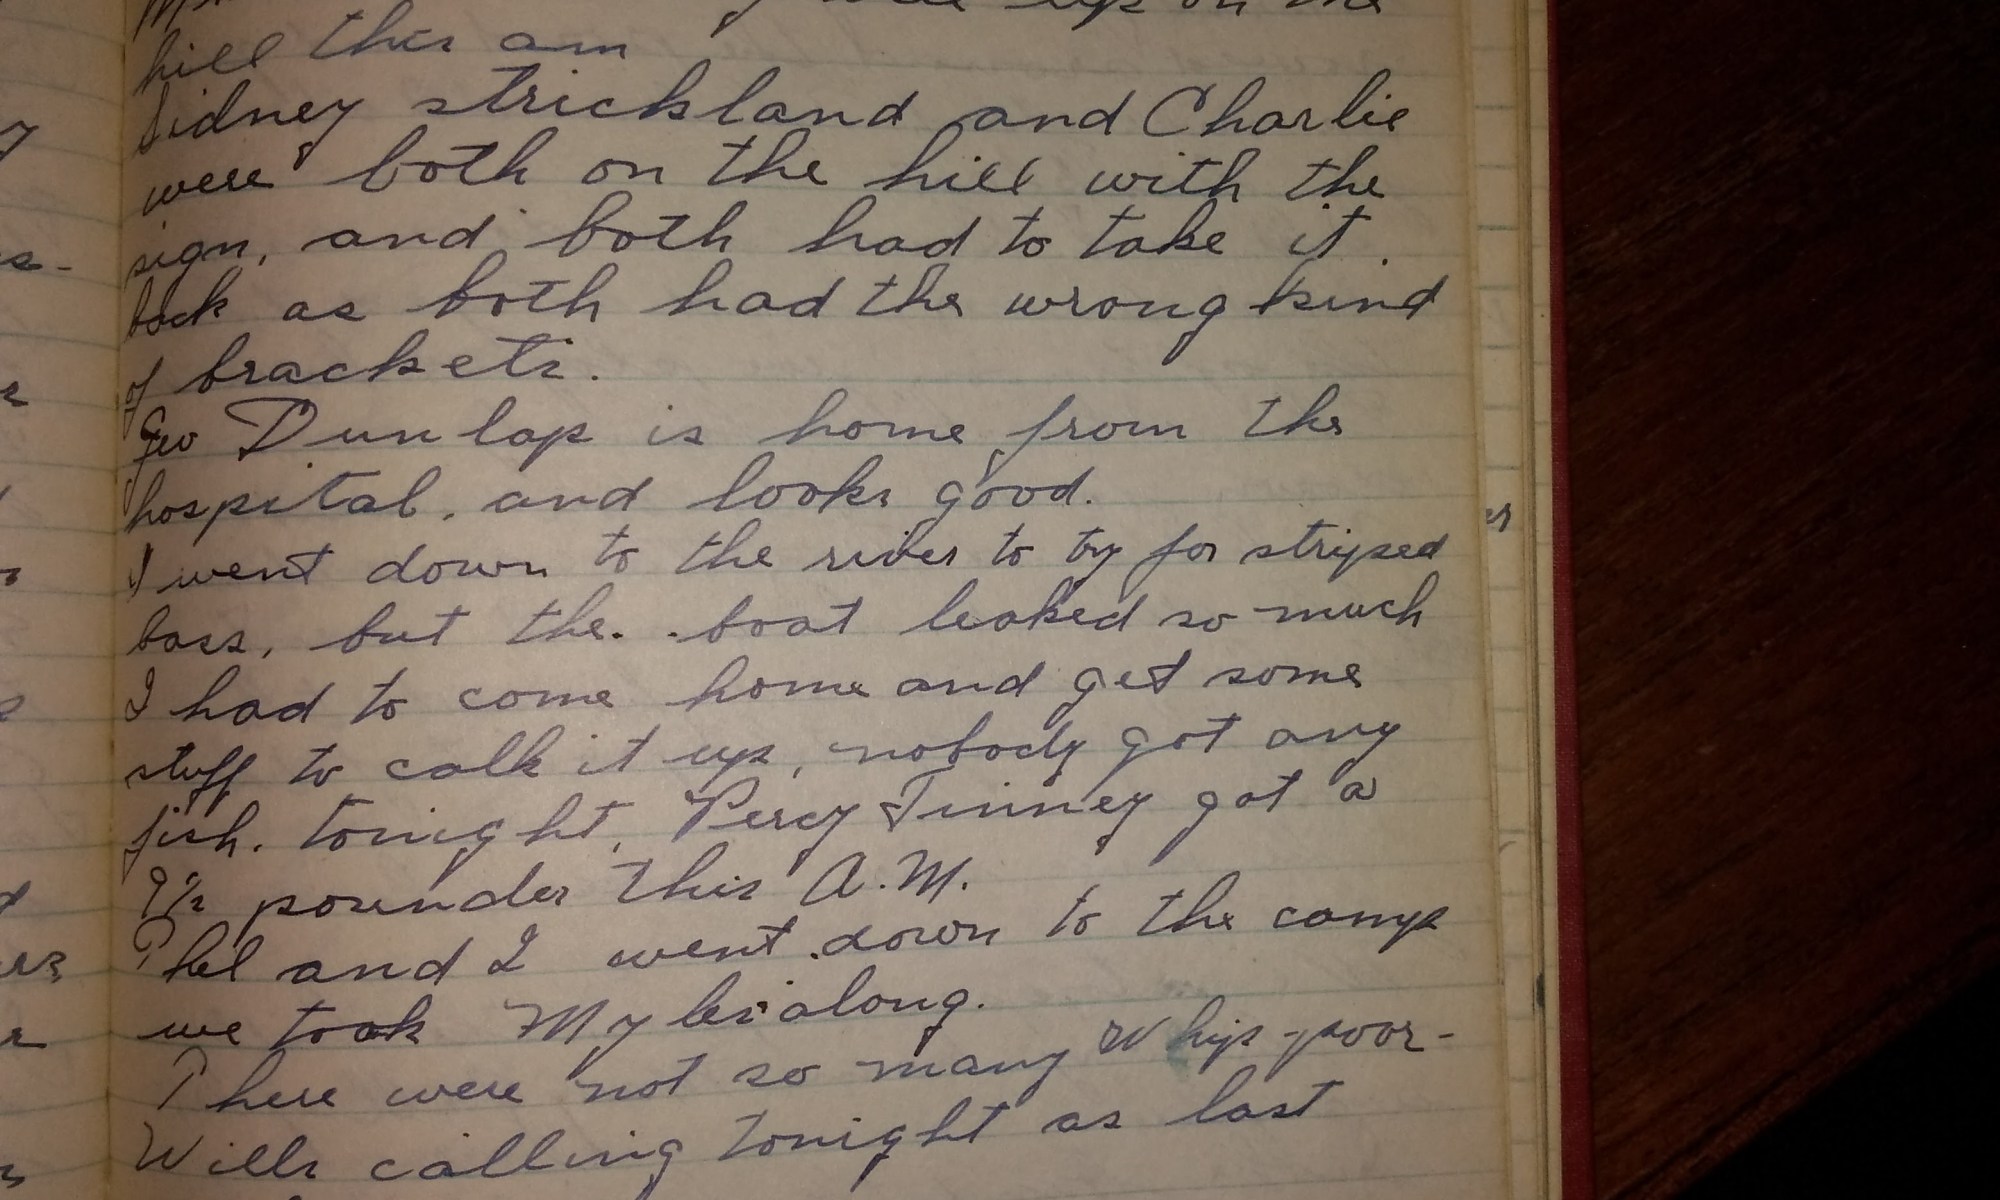 up on the
hill this am
Sidney strickland and Charlie
were both on the hill with the
sign, and both had to take it
back as both had the wrong kind
of brackets.
Geo Dunlap is home from the
hospital, and looks good.
I went down to the river to try for striped
bass, but the boat leaked so much
I had to come home and get some
stuff to calk it up, nobody got any
fish. tonight, Percy Tinney got a
9½ pounder this A.M.
Phel and I went down to the camp
we took Myles along.
There were not so many Whip-poor-
Wills calling tonight as last